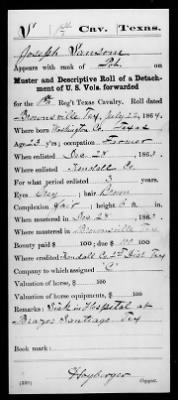 S | 1st | Cav. | Texas.
Joseph Sansom
Appears with rank of Pvt. on
Muster and Descriptive Roll of a Detachment of U. S. Vols. forwarded
for the 1st Reg't Texas Cavalry. Roll dated
Brownsville Tex, July 22, 1864.
Where born Washington Co. Texas
Age 23 y'rs; occupation Farmer
When enlisted Dec 28, 1863.
Where enlisted Kendall Co.
For what period enlisted 3 years.
Eyes Grey; hair Brown
Complexion Fair; height 6 ft. in.
When mustered in Dec 28, 1863.
Where mustered in Brownsville Tex
Bounty paid $ 100; due $ 100
Where credited Kendall Co 2nd Dist Tex
Company to which assigned "C"
Valuation of horse, $ 100
Valuation of horse equipments, $ 100
Remarks: Sick in Hospital at
Brazos Santiago Tex
Book mark:
Copyist.